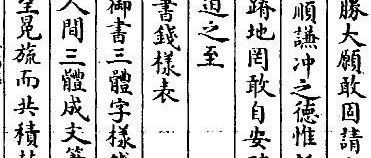 勝大願敢固請
順謙冲之德惟
蹐地罔敢自安
之至
書錢樣表
御書三體字樣
人間三體成文
冕旒而共積